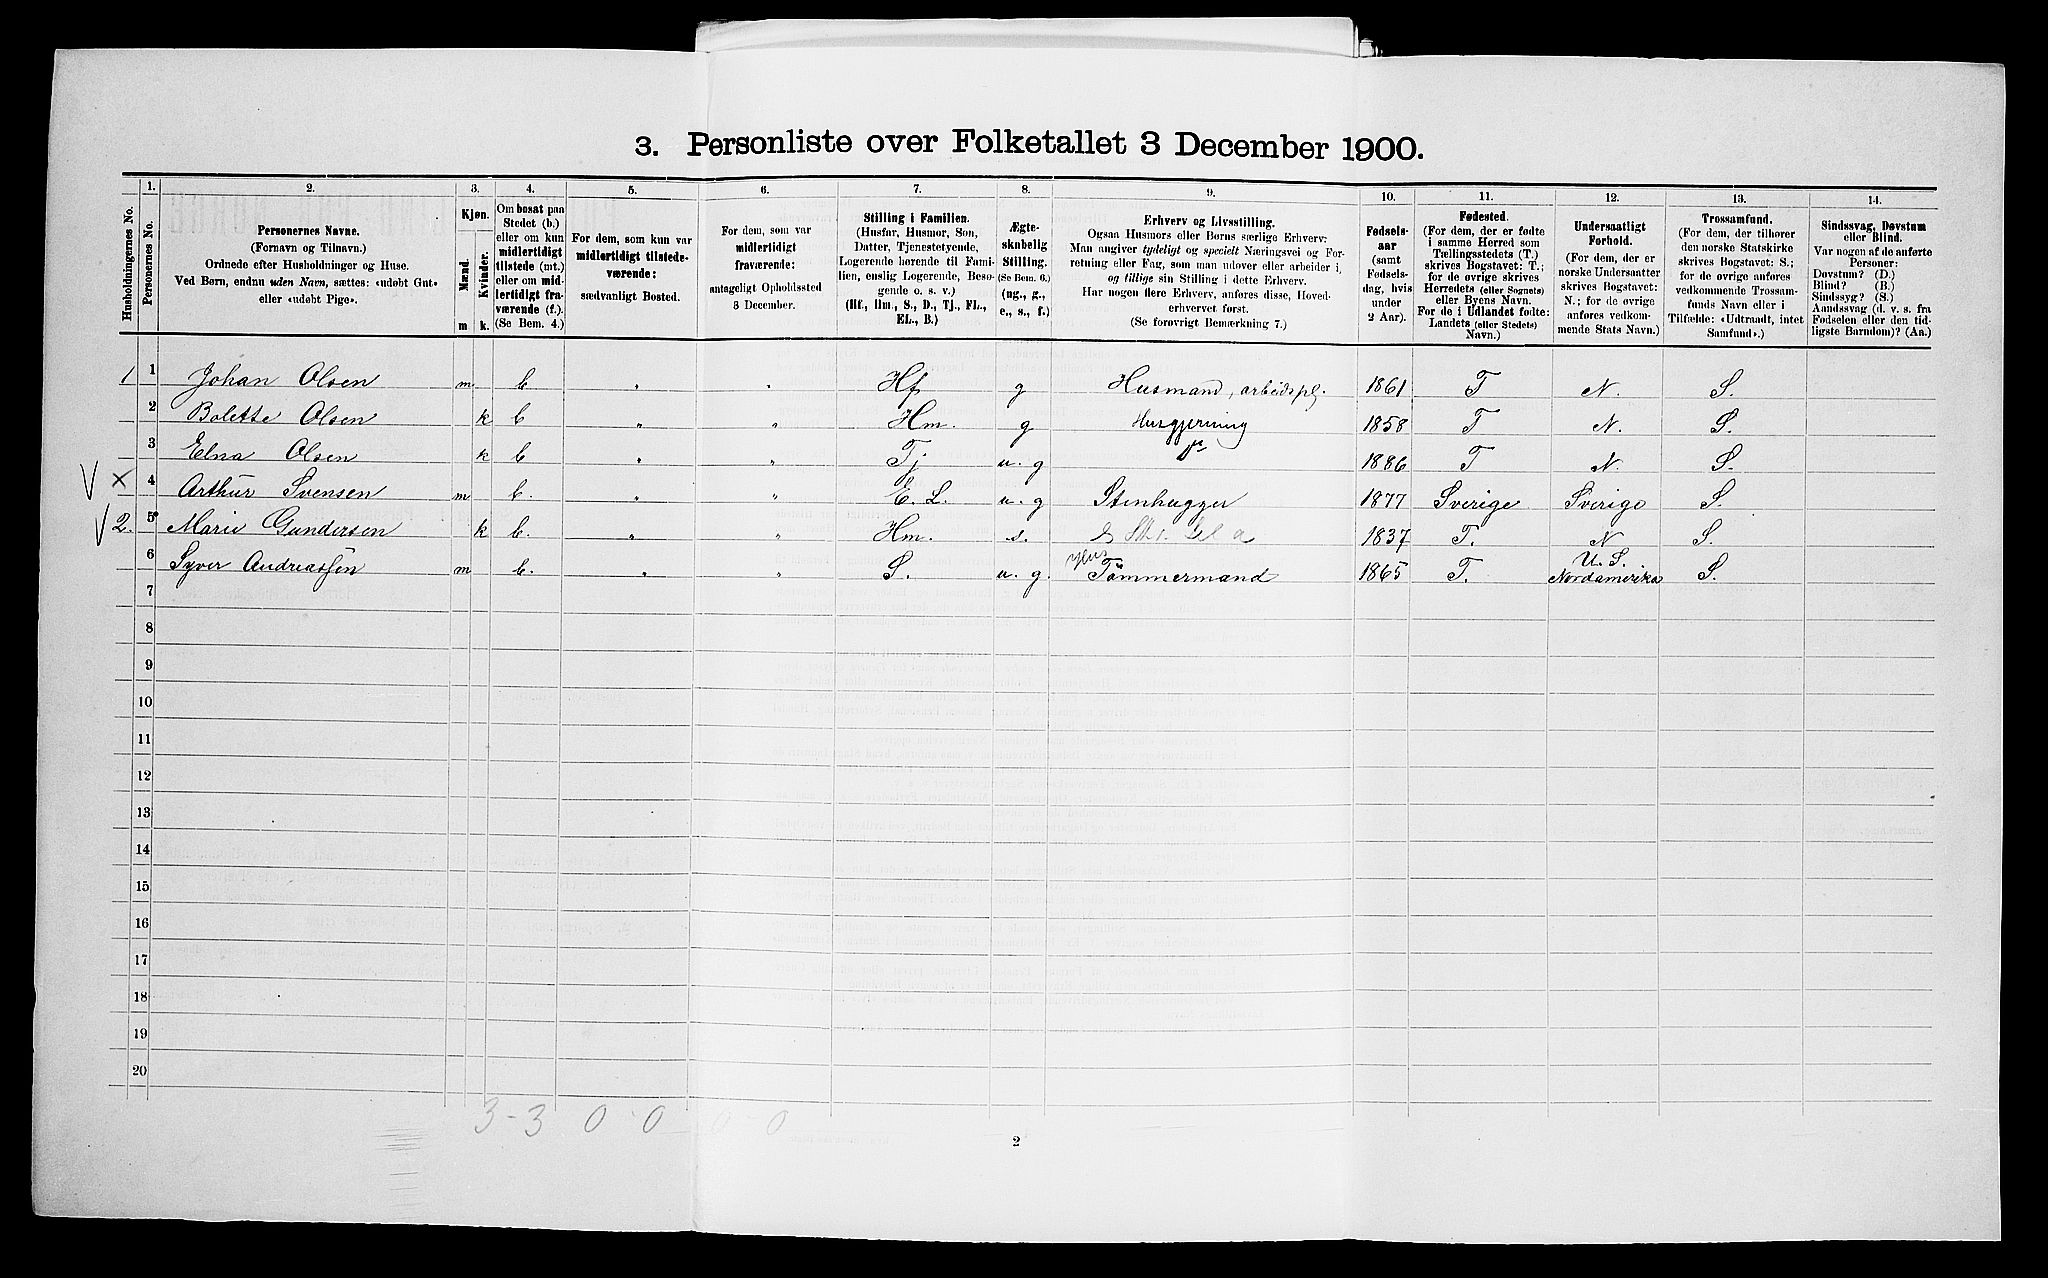 3. Personliste over Folketallet 3 December 1900.
1. 2. 3. 4. 5. 6. 7. 8. 9. 10. 11. 12. 13. 14.
Husholdningernes No.
Personernes No.
Personernes Navne.
(Fornavn og Tilnavn.)
Ordnede efter Husholdninger og Huse.
Ved Børn, endnu uden Navn, sættes: «udøbt Gut»
eller «udøbt Pige».
Kjøn.
Mænd.
Kvinder.
m k.
Om bosat paa
Stedet (b.)
eller om kun
midlertidigt
tilstede (mt.)
eller om mid-
lertidigt fra-
værende (f.).
(Se Bem. 4.)
For dem, som kun var
midlertidigt tilstede-
værende:
sædvanligt Bosted.
For dem, som var
midlertidigt
fraværende:
antageligt Opholdssted
3 December.
Stilling i Familien.
(Husfar, Husmor, Søn,
Datter, Tjenestetyende,
Logerende hørende til Fami-
lien, enslig Logerende, Besø-
gende o. s. v.)
(Hf., Hm., S., D., Tj., FL.,
EL., B.)
Ægte-
skabelig
Stilling.
(Se Bem. 6.)
(ug., g.,
e., s., f.)
Erhverv og Livsstilling.
Ogsaa Husmors eller Børns særlige Erhverv:
Man angiver tydeligt og specielt Næringsvei og For-
retning eller Fag, som man udøver eller arbeider i,
og tillige sin Stilling i dette Erhverv.
Har nogen flere Erhverv, anføres disse, Hoved-
erhvervet først.
(Se forøvrigt Bemærkning 7.)
Fødsels-
aar
(samt
Fødsels-
dag, hvis
under
2 Aar).
Fødested.
(For dem, der er fødte
i samme Herred som
Tællingsstedets (T.)
skrives Bogstavet: T.;
for de øvrige skrives
Herredets (eller Sognets)
eller Byens Navn.
For de i Udlandet fødte:
Landets (eller Stedets)
Navn.)
Undersaatligt
Forhold.
(For dem, der er
norske Undersaatter
skrives Bogstavet:
N.; for de øvrige
anføres vedkom-
mende Stats Navn.)
Trossamfund.
(For dem, der tilhører
den norske Statskirke
skrives Bogstavet: S.;
for de øvrige anføres
vedkommende Trossam-
funds Navn eller i
Tilfælde: «Udtraadt, intet
Samfund».)
Sindssvag, Døvstum
eller Blind.
Var nogen af de anførte
Personer:
Døvstum? (D.)
Blind? (B.)
Sindssyg? (S.)
Aandssvag (d. v. s. fra
Fødselen eller den tid-
ligste Barndom)? (Aa.)
1 1 Johan Olsen m. b " " Hf g Husmand, arbeidspl. 1861 T N. S.
2 Bolette Olsen k b " " Hm. g Husgjerning 1858 T N. S.
3 Elna Olsen k b " " Tj u. g do 1886 T N. S.
V × 4 Arthur Svensen m b. " " E. L. u. g Stenhugger 1877 Sverige Sverige S.
V 2. 5 Marie Gundersen k b. " " Hm. s. 1837 T. N S.
6 Syver Andreassen m b. " " S. u. g. Tømmermand 1865 T. U. S. Nordamerika S.
7
8
9
10
11
12
13
14
15
16
17
18
19
20
3-3 0-0 0-0
2